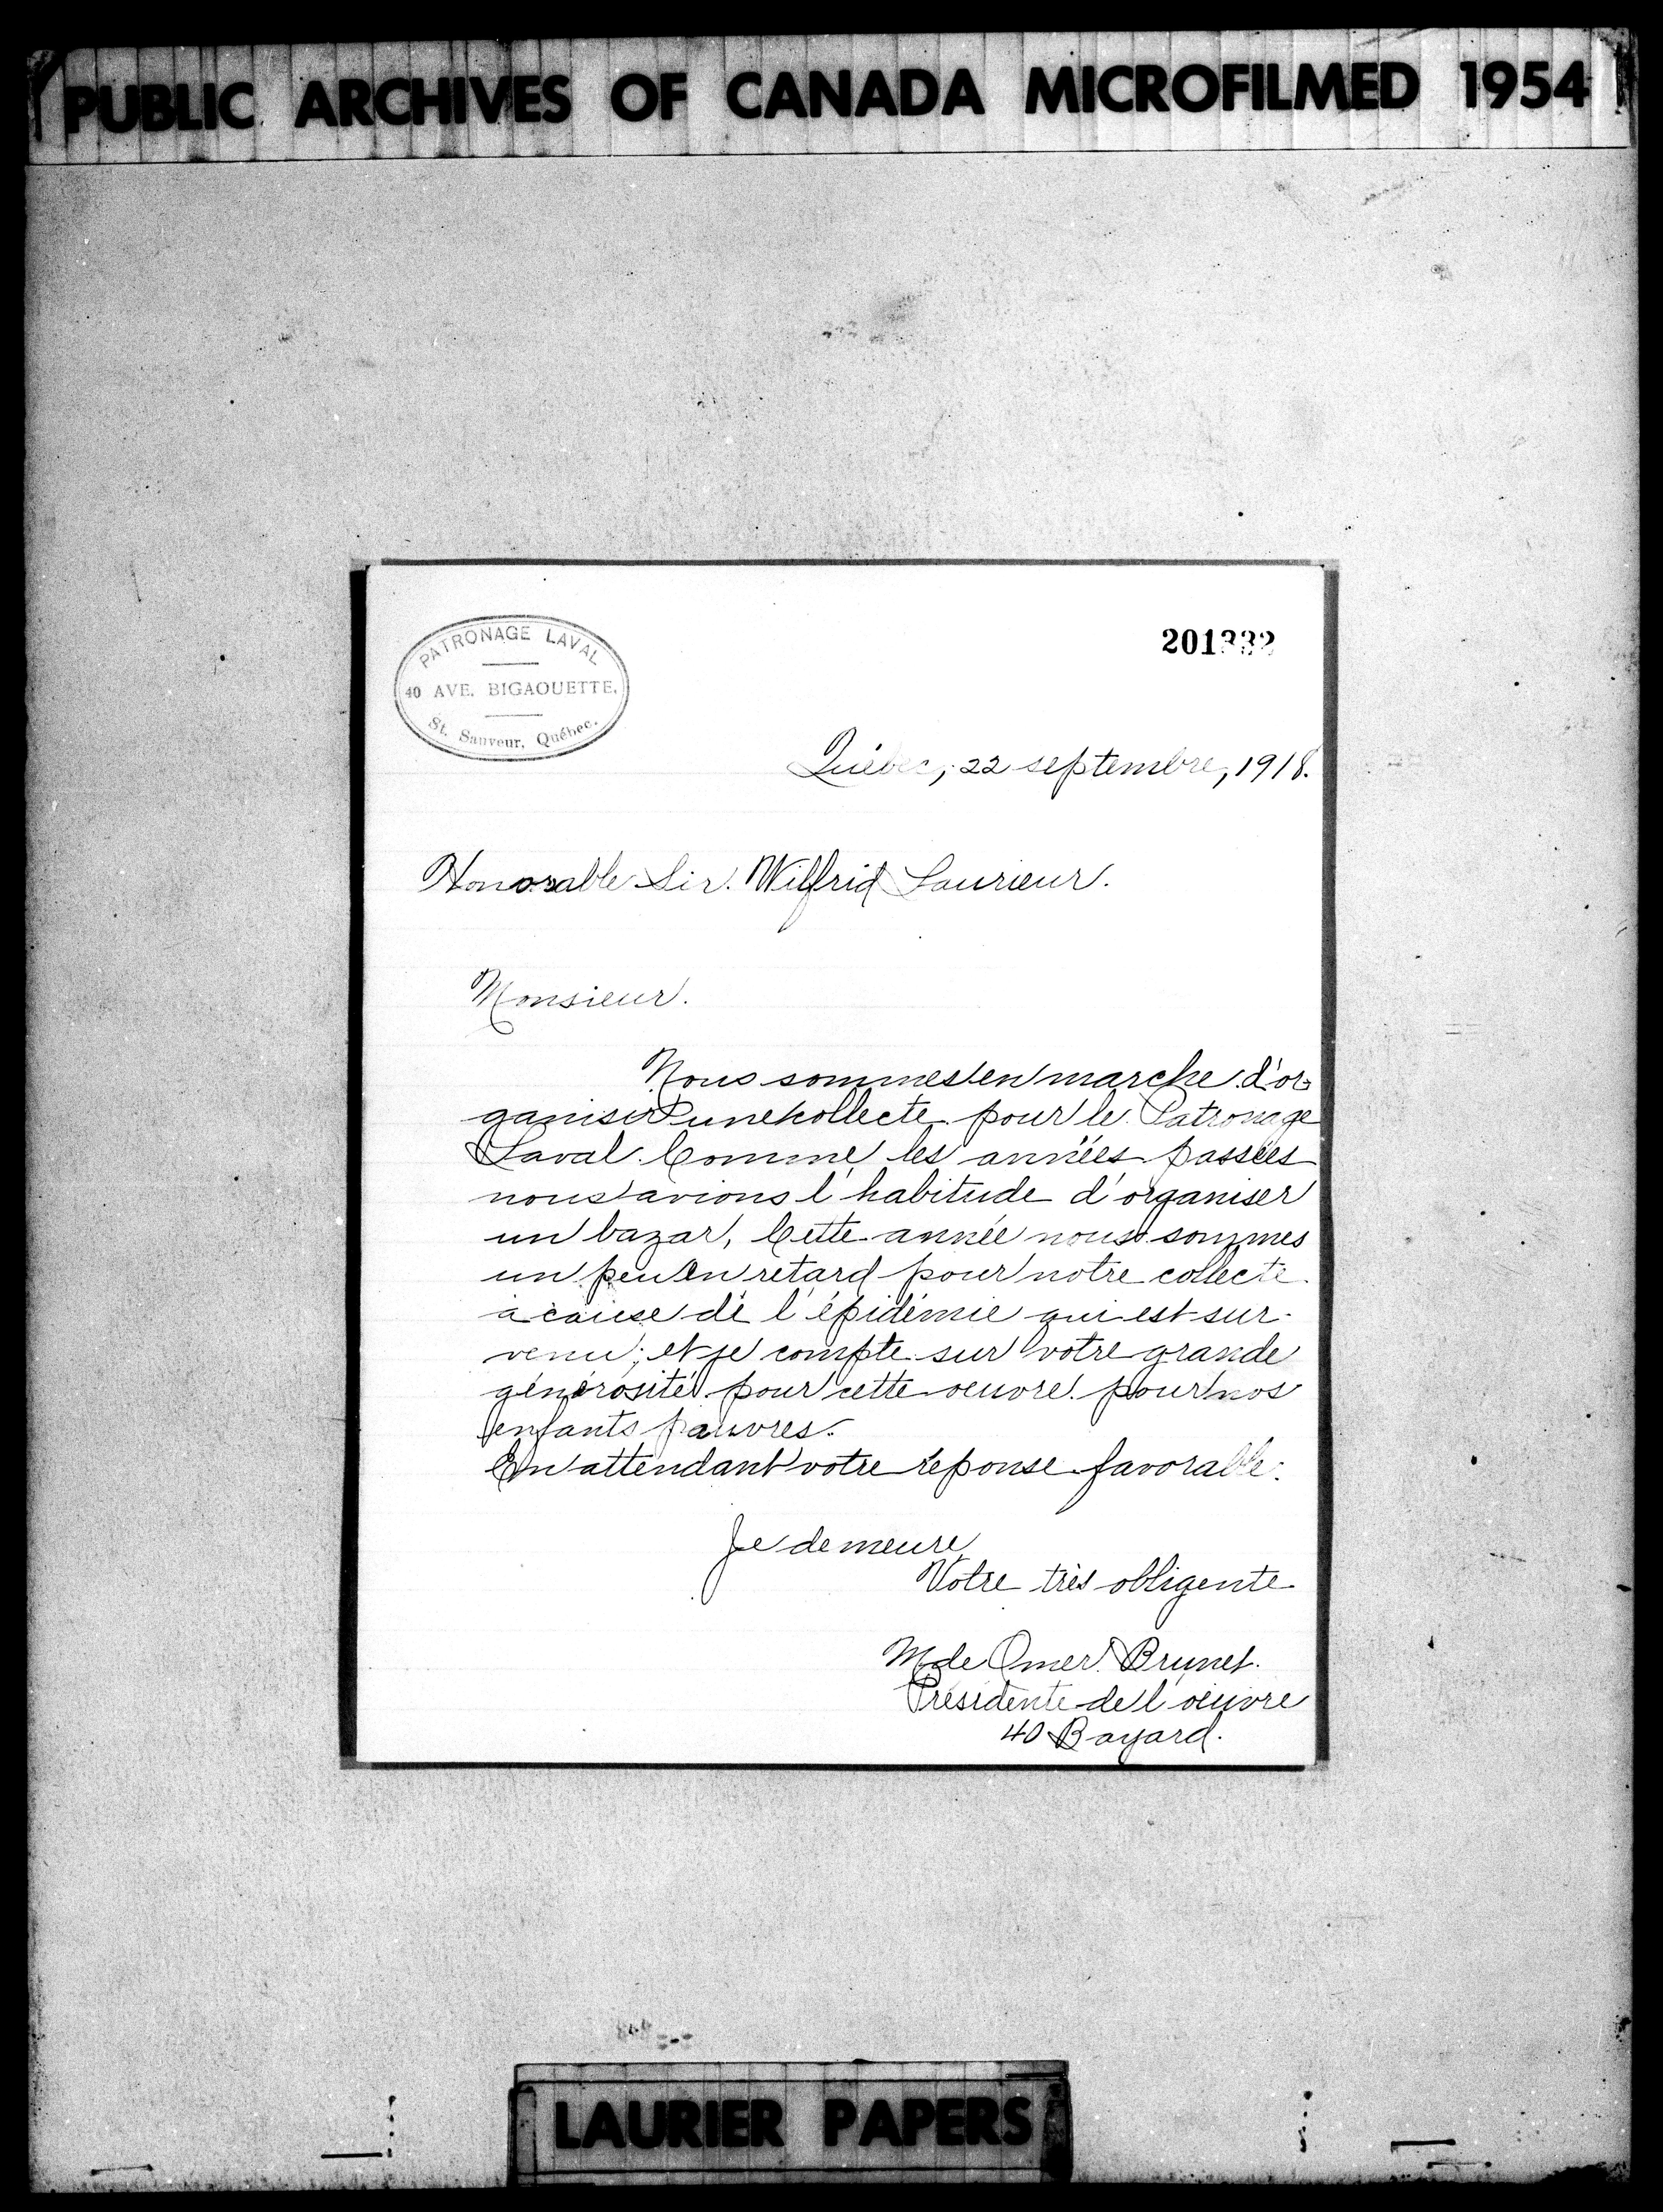 PUBLIC ARCHIVES OF CANADA MICROFILMED 1954
PATRONAGE LAVAL
40 AVE. BIGAOUETTE.
St. Sauveur, Québec.
201332
Québec, 22 septembre, 1918.
Honorable Sir. Wilfrid Laurieur.
Monsieur.
Nous sommes en marche d'or-
ganiser une collecte pour le Patronage
Laval. Comme les années passées
nous avions l'habitude d'organiser
un bazar, Cette année nous sommes
un peu en retard pour notre collecte
à cause de l'épidémie qui est sur-
venu; et je compte sur votre grande
générosité pour cette oeuvre pour nos
enfants pauvres.
En attendant votre réponse favorable.
Je demeure
Votre très obligente
Mde Omer Brunet.
Présidente de l'oeuvre
40 Bayard.
LAURIER PAPERS